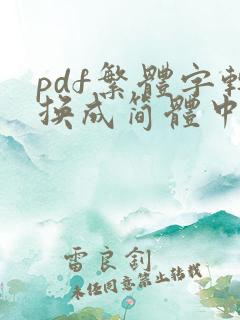 pdf繁體字轉
换成简體中
雷良釗
未经同意禁止转载